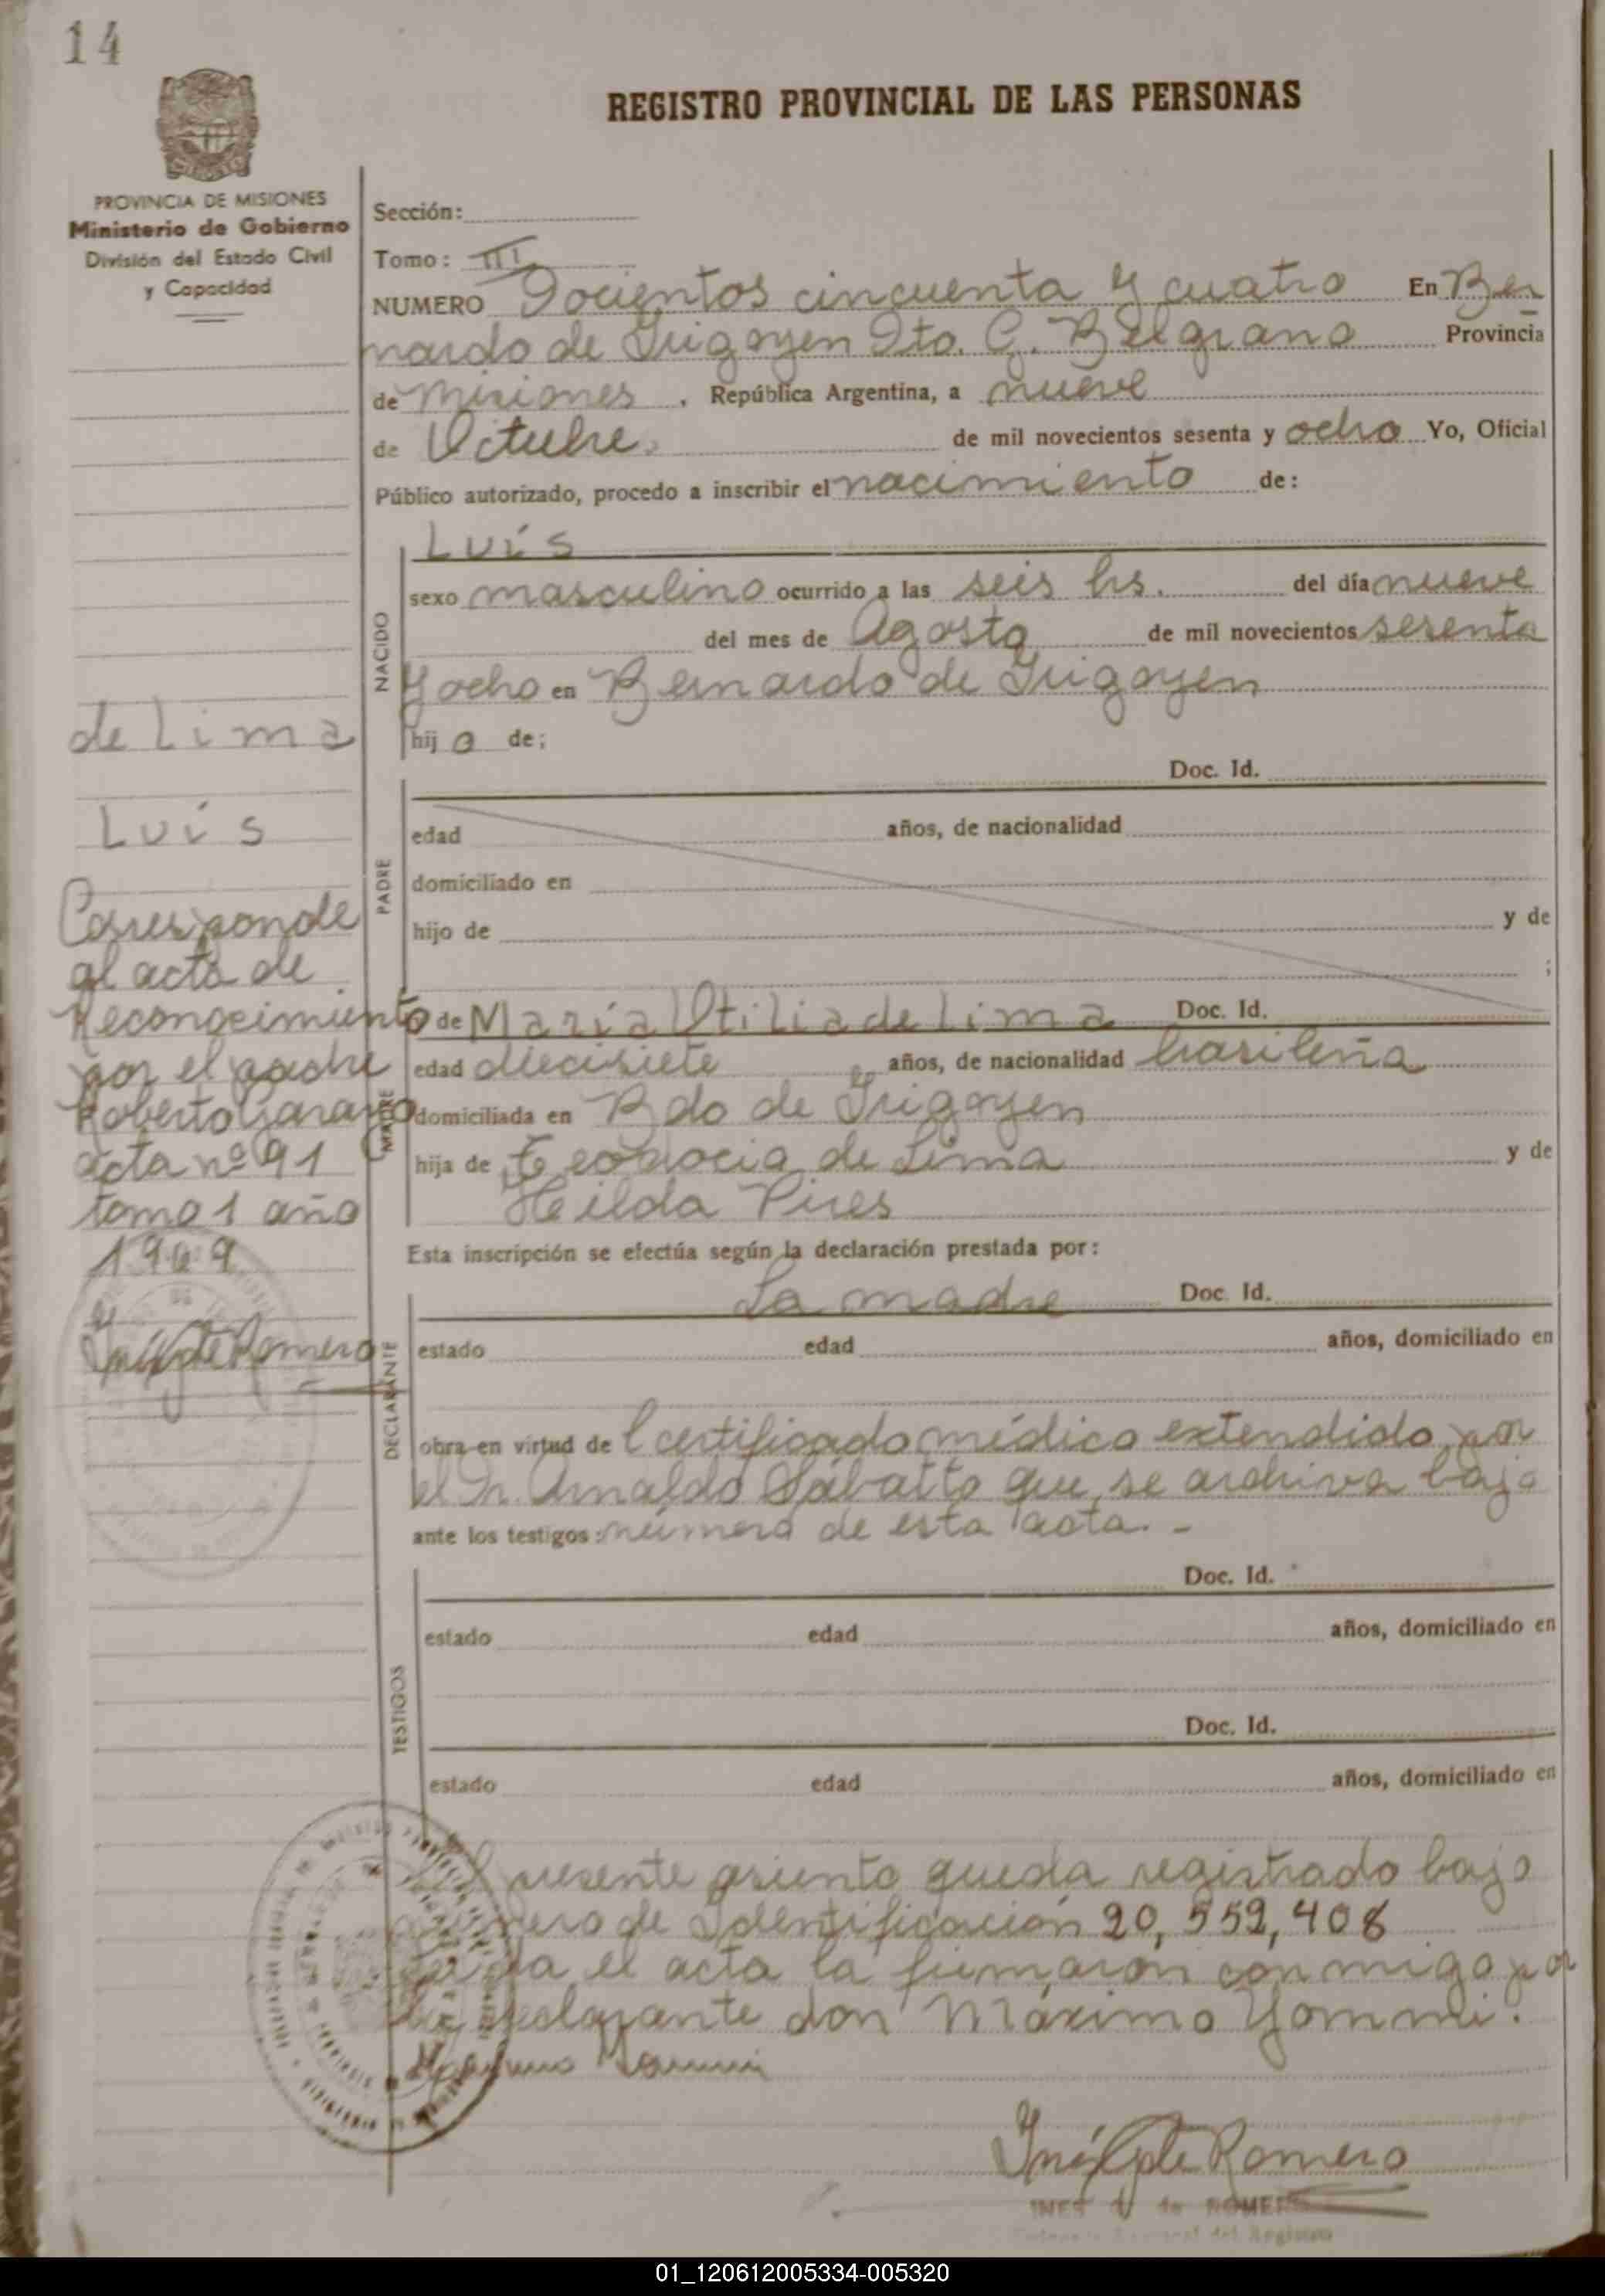 14
REGISTRO PROVINCIAL DE LAS PERSONAS
PROVINCIA DE MISIONES
Ministerio de Gobierno
División del Estado Civil
y Capacidad
Sección:
Tomo: III
NUMERO Docientos cincuenta y cuatro En Ber
nardo de Irigoyen Dto. G. Belgrano Provincia
de Misiones, República Argentina, a nueve
de Octubre. de mil novecientos sesenta y ocho Yo, Oficial
Público autorizado, procedo a inscribir el nacimiento de:
NACIDO
Luís
sexo masculino ocurrido a las seis hs. del día nueve
del mes de Agosto de mil novecientos sesenta
y ocho en Bernardo de Irigoyen
hijo de;
de Lima
Luís
Corresponde
al acta de
Reconocimiento
por el padre
Roberto
acta nº 91
tomo 1 año
1969
PADRE
Doc. Id.
edad años, de nacionalidad
domiciliado en
hijo de y de
;
MADRE
de María Otilia de Lima Doc. Id.
edad diecisiete años, de nacionalidad brasileña
domiciliada en Bdo de Irigoyen
hija de Teodocia de Lima y de
Hilda Pires
Esta inscripción se efectúa según la declaración prestada por:
DECLARANTE
La madre Doc. Id.
estado edad años, domiciliado en
obra en virtud de l certificado médico extendido por
el Dr. Arnaldo Sabatto que se archiva bajo
ante los testigos: número de esta acta. -
TESTIGOS
Doc. Id.
estado edad años, domiciliado en
Doc. Id.
estado edad años, domiciliado en
presente asiento queda registrado bajo
número de Identificación 20,552,408
el acta la firmaron conmigo por
declarante don Máximo Yommi.
de Romero
INES de ROMERO
del Registro
01_120612005334-005320